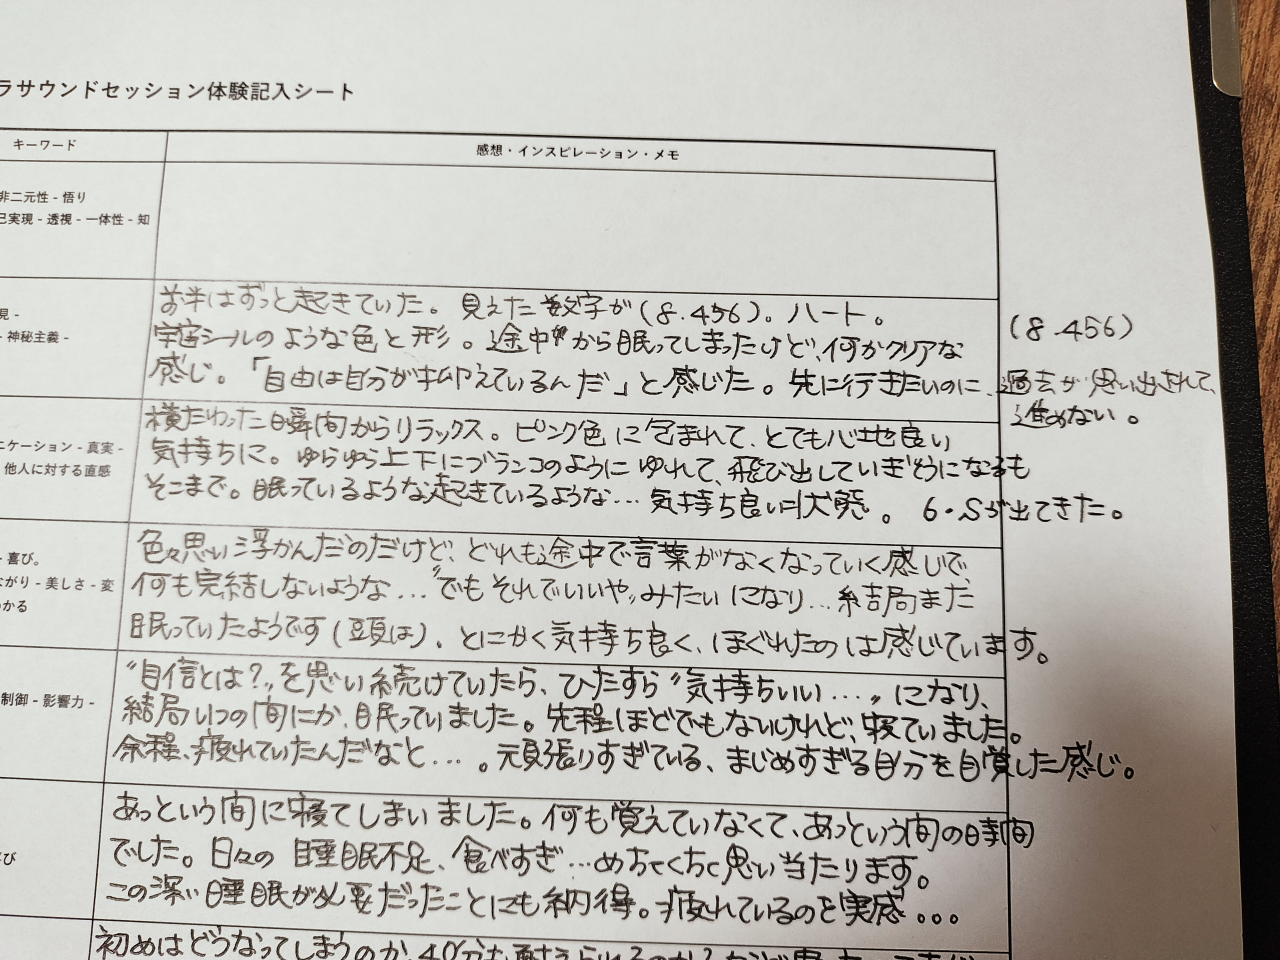 ラサウンドセッション体験記入シート
キーワード
感想・インスピレーション・メモ
非二元性 - 悟り
己実現 - 透視 - 一体性 - 知
見 -
- 神秘主義 -
前半はずっと起きていた。見えた数字が(8.456)。ハート。
宇宙シールのような色と形。途中から眠ってしまったけど、何かクリアな
感じ。「自由は自分が抑えているんだ」と感じた。先に行きたいのに、過去が思い出されて、
進めない。
(8.456)
ニケーション - 真実 -
他人に対する直感
横たわった瞬間からリラックス。ピンク色に包まれて、とても心地良い
気持ちに。ゆらゆら上下にブランコのようにゆれて、飛び出していきそうになるも
そこまで。眠っているような起きているような…気持ち良い状態。 6・5が出てきた。
- 喜び。
ながり - 美しさ - 変
わかる
色々思い浮かんだのだけど、どれも途中で言葉がなくなっていく感じで、
何も完結しないような…"でもそれでいいや"みたいになり…結局また
眠っていたようです(頭は)。とにかく気持ち良く、ほぐれたのは感じています。
制御 - 影響力 -
"自信とは?"を思い続けていたら、ひたすら"気持ちいい…"になり、
結局いつの間にか、眠っていました。先程ほどでもないけれど、寝ていました。
余程、疲れていたんだなと…。頑張りすぎている、まじめすぎる自分を自覚した感じ。
び
あっという間に寝てしまいました。何も覚えていなくて、あっという間の時間
でした。日々の睡眠不足、食べすぎ…めちゃくちゃ思い当たります。
この深い睡眠が必要だったことにも納得。疲れているのを実感…
初めはどうなってしまうのか、40分も耐えられるのか?